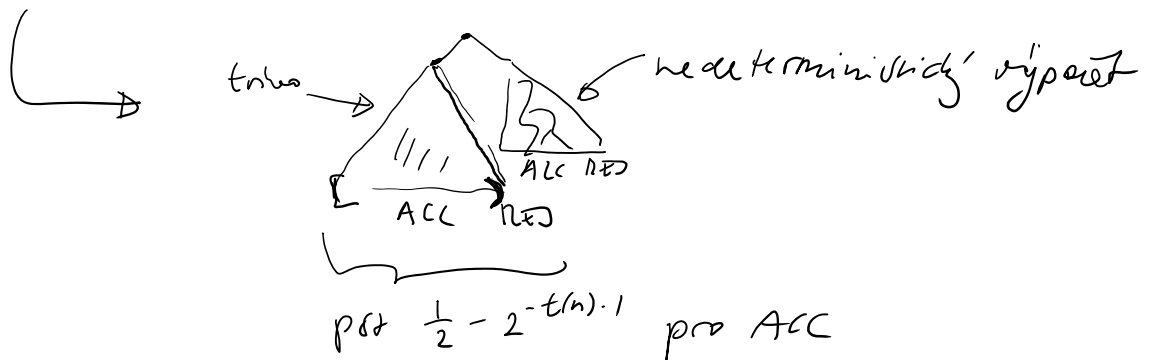 nedeterministický výpočet
ACC REJ
ACC REJ
pst 1/2 - 2^{-t(n)} · 1 pro ACC